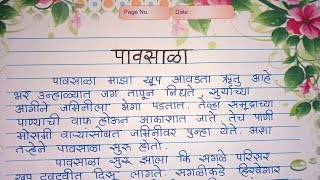 Page No.
Date :
पावसाळा
पावसाळा माझा खूप आवडता ऋतू आहे.
भर उन्हाळ्यात जग तापून निघते. सूर्याच्या
आगीने जमिनीला भेगा पडतात. तेव्हा समुद्राच्या
पाण्याची वाफ होऊन आकाशात जाते. तेच पाणी
मोसमी वाऱ्यांसोबत जमिनीवर पुन्हा येते. अशा
तऱ्हेने पावसाळा सुरू होतो.
पावसाळा सुरू झाला कि सगळे परिसर
खूप टवटवीत दिसू लागते. सगळीकडे हिरवेगार